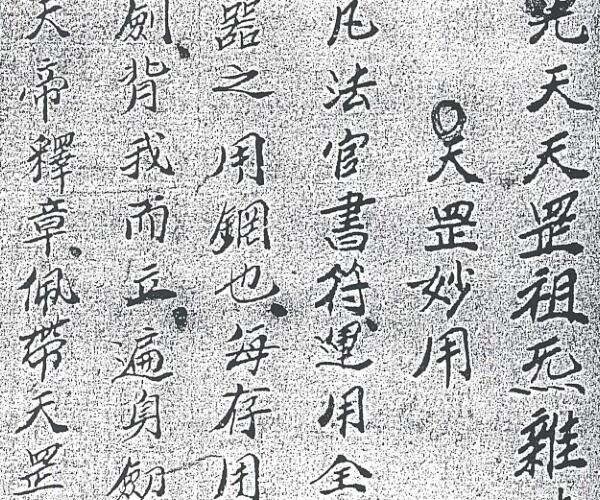 先天天罡祖炁雜
天罡妙用
凡法官書符運用全
器之用鋼也每存用
劍背我而立遍身
天帝釋章佩帶天罡